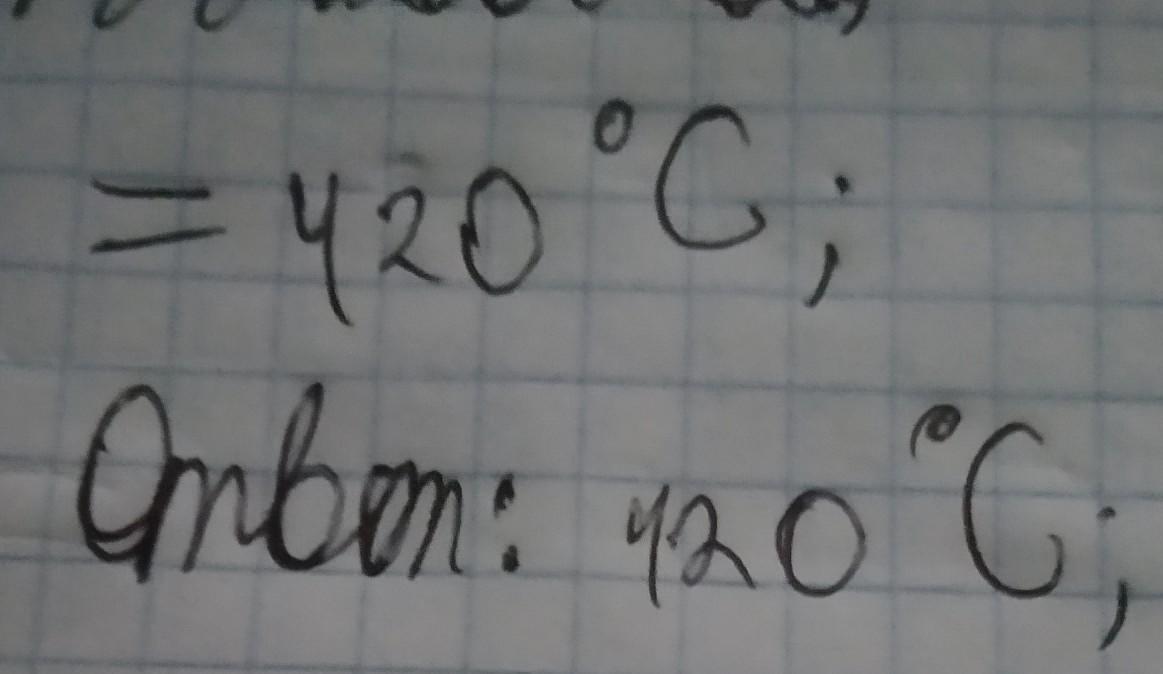 = 420 °C;
Ответ: 420 °C;